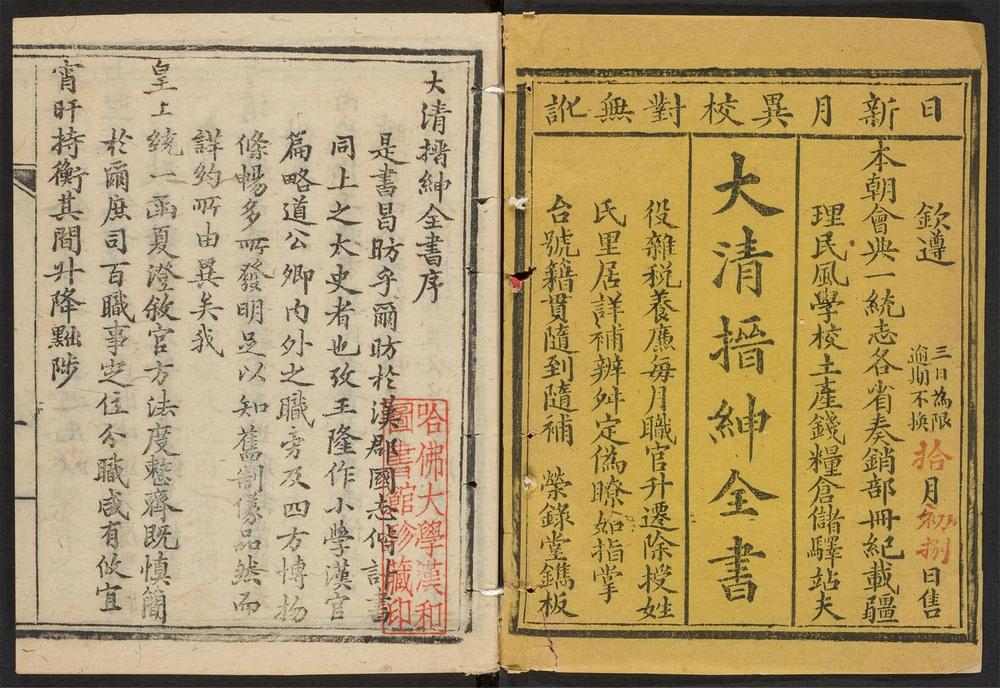 日新月異校對無訛
欽遵
三日為限
逾期不換
拾月初捌日售
本朝會典一統志各省奏銷部冊紀載疆
理民風學校土產錢糧倉儲驛站夫
大清搢紳全書
役雜稅養廉每月職官升遷除授姓
氏里居詳補辨舛定偽瞭如指掌
台號籍貫隨到隨補 榮錄堂鐫板
大清搢紳全書序
是書昌昉乎爾昉於漢郡國志計書
同上之太史者也攷王隆作小學漢官
篇略道公卿內外之職旁及四方博物
條暢多所發明足以知舊制儀品然而
詳約所由異矣我
皇上統一函夏澄敘官方法度整齊既慎簡
於爾庶司百職事定位分職咸有攸宜
宵旰持衡其間升降黜陟
哈佛大學漢和
圖書館珍藏印